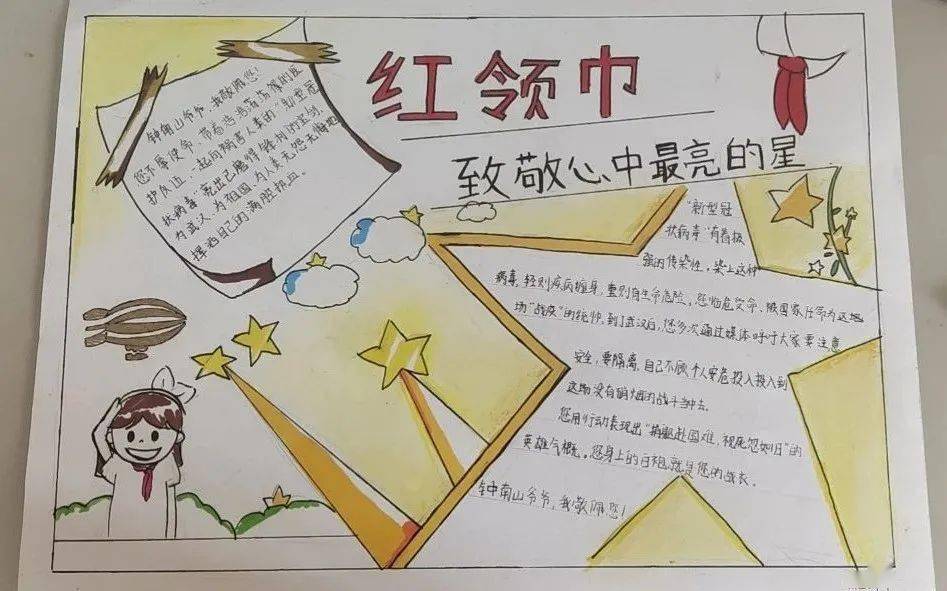 红领巾
致敬心中最亮的星
钟南山爷爷，我敬佩您！
您不辱使命，带着浩浩荡荡的医
护队伍，一起向祸害人类的“新型冠
状病毒”亮出已磨得锋利的宝剑
为武汉、为祖国、为人类无怨无悔地
挥洒自己的满腔热血。
“新型冠
状病毒”有着极
强的传染性，染上这种
病毒，轻则疾病缠身，重则有生命危险，您临危受命，被国家任命为这场
场“战疫”的统帅，到了武汉后，您多次通过媒体呼吁大家要注意
安全，要隔离，自己不顾个人安危投入投入到
这场没有硝烟的战斗当中去。
您用行动表现出“捐躯赴国难，视死忽如归”的
英雄气概。您身上的白袍就是您的战衣。
钟中南山爷爷，我敬佩您！